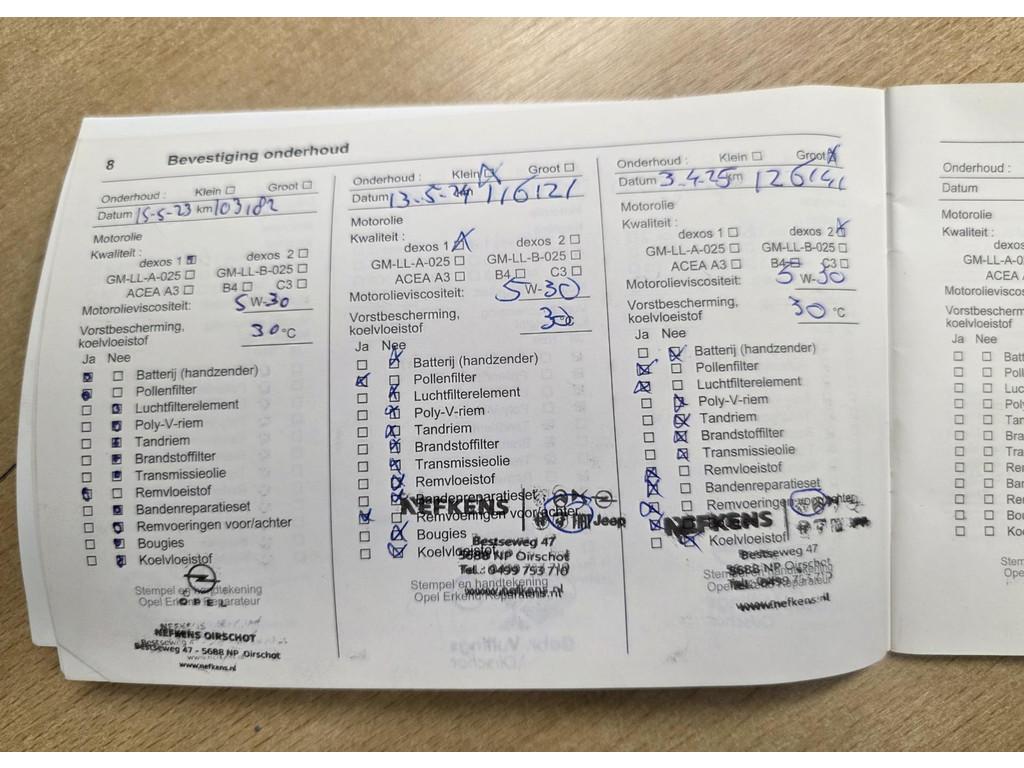 8 Bevestiging onderhoud
Onderhoud : Klein ☐ Groot ☐
Datum 15-5-23 km 103182
Motorolie
Kwaliteit :
dexos 1 ☒ dexos 2 ☐
GM-LL-A-025 ☐ GM-LL-B-025 ☐
ACEA A3 ☐ B4 ☐ C3 ☐
Motorolieviscositeit: 5W-30
Vorstbescherming,
koelvloeistof 30 °C
Ja Nee
☒ ☐ Batterij (handzender)
☒ ☐ Pollenfilter
☐ ☒ Luchtfilterelement
☐ ☒ Poly-V-riem
☐ ☒ Tandriem
☐ ☒ Brandstoffilter
☐ ☒ Transmissieolie
☒ ☐ Remvloeistof
☐ ☒ Bandenreparatieset
☐ ☒ Remvoeringen voor/achter
☐ ☒ Bougies
☐ ☒ Koelvloeistof
Stempel en handtekening
Opel Erkend Reparateur
OPEL
NEFKENS OIRSCHOT
Bestseweg 47 - 5688 NP Oirschot
www.nefkens.nl
Onderhoud : Klein ☒ Groot ☐
Datum 13-5-24 km 116121
Motorolie
Kwaliteit :
dexos 1 ☒ dexos 2 ☐
GM-LL-A-025 ☐ GM-LL-B-025 ☐
ACEA A3 ☐ B4 ☐ C3 ☐
Motorolieviscositeit: 5W-30
Vorstbescherming,
koelvloeistof 30 °C
Ja Nee
☐ ☒ Batterij (handzender)
☒ ☐ Pollenfilter
☐ ☒ Luchtfilterelement
☐ ☒ Poly-V-riem
☐ ☒ Tandriem
☐ ☒ Brandstoffilter
☐ ☒ Transmissieolie
☐ ☒ Remvloeistof
☐ ☒ Bandenreparatieset
☒ ☐ Remvoeringen voor/achter
☐ ☒ Bougies
☐ ☒ Koelvloeistof
NEFKENS Jeep
Bestseweg 47
5688 NP Oirschot
Tel.: 0499 753 710
www.nefkens.nl
Stempel en handtekening
Opel Erkend Reparateur
Onderhoud : Klein ☐ Groot ☒
Datum 3-4-25 km 126141
Motorolie
Kwaliteit :
dexos 1 ☐ dexos 2 ☒
GM-LL-A-025 ☐ GM-LL-B-025 ☐
ACEA A3 ☐ B4 ☐ C3 ☐
Motorolieviscositeit: 5W-30
Vorstbescherming,
koelvloeistof 30 °C
Ja Nee
☐ ☒ Batterij (handzender)
☒ ☐ Pollenfilter
☒ ☐ Luchtfilterelement
☐ ☒ Poly-V-riem
☐ ☒ Tandriem
☐ ☒ Brandstoffilter
☐ ☒ Transmissieolie
☒ ☐ Remvloeistof
☒ ☐ Bandenreparatieset
☒ ☐ Remvoeringen voor/achter
☐ ☒ Koelvloeistof
NEFKENS
Bestseweg 47
5688 NP Oirschot
www.nefkens.nl
Stempel en handtekening
Onderhoud :
Datum
Motorolie
Kwaliteit :
Ja Nee